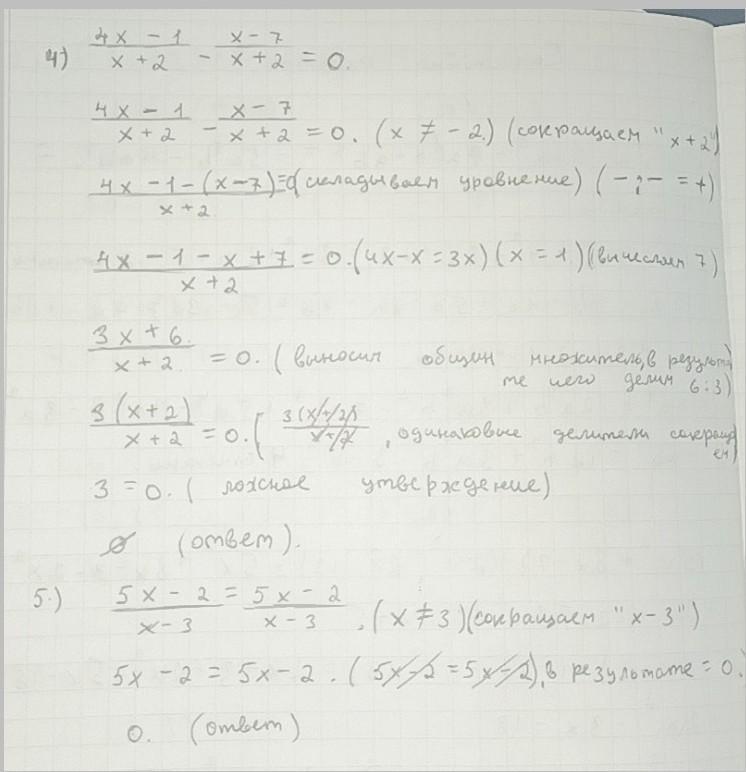 4) (4x - 1)/(x + 2) - (x - 7)/(x + 2) = 0.
(4x - 1)/(x + 2) - (x - 7)/(x + 2) = 0. (x ≠ -2.) (сокращаем "x+2")
(4x - 1 - (x - 7))/(x + 2) = 0 (складываем уровнение) (- ; - = +)
(4x - 1 - x + 7)/(x + 2) = 0. (4x-x = 3x) (x = 1) (вычеслаем 7)
(3x + 6)/(x + 2) = 0. (выносим общий множитель, в результа
те чего делим 6:3)
3(x+2)/(x + 2) = 0. ( 3(x+2)/(x+2) , одинаковые делители сокращ
ем)
3 = 0. ( ложное утверждение)
∅ (ответ).
5.) (5x - 2)/(x - 3) = (5x - 2)/(x - 3) . (x ≠ 3) (сокращаем "x-3")
5x - 2 = 5x - 2 . ( 5x-2 = 5x-2), в результате = 0.
0. (ответ)